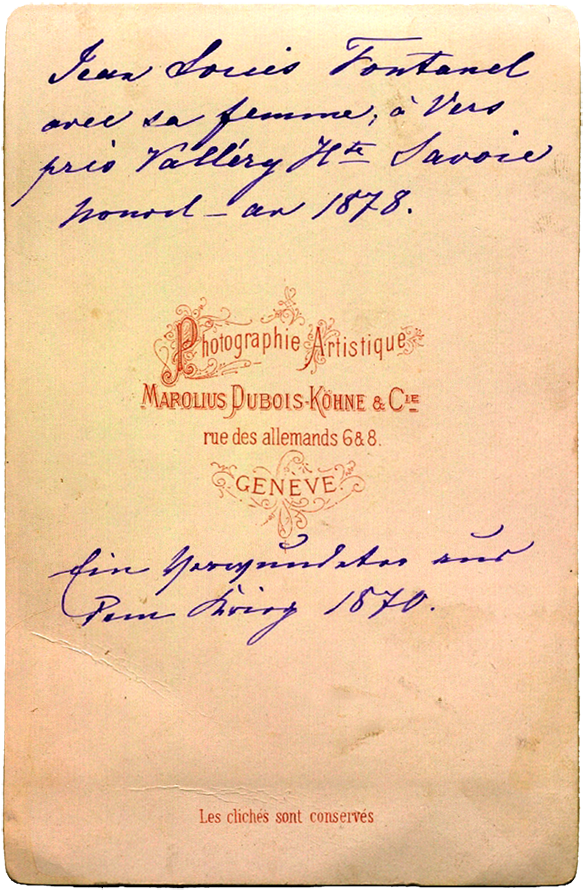 Jean Louis Fontanel
avec sa femme, à Vers
près Valléry Hte Savoie
nouvel-an 1878.
Photographie Artistique
MAROLIUS DUBOIS-KÖHNE & CIE
rue des allemands 6 & 8.
GENÈVE.
Ein Verwundeter aus
dem Krieg 1870.
Les clichés sont conservés